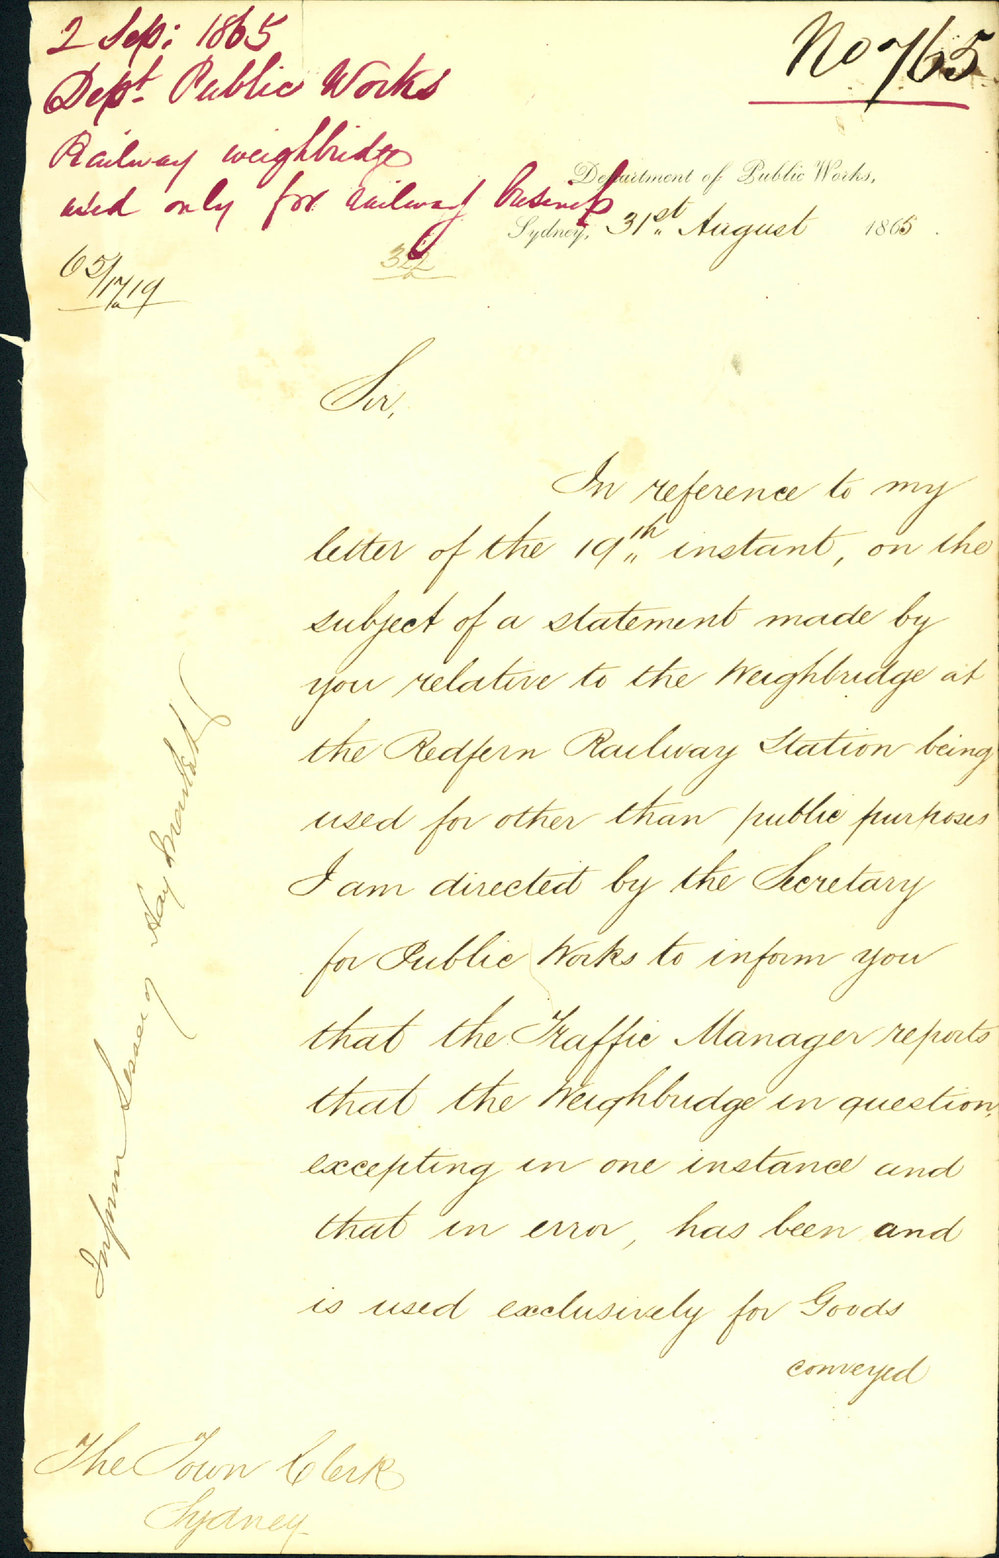 2 Sep: 1865
No 765
Dept. Public Works
Railway weighbridge
used only for railway business
Department of Public Works,
Sydney, 31st August 1865.
65/1719
Sir,
In reference to my
letter of the 19th instant, on the
subject of a statement made by
you relative to the Weighbridge at
the Redfern Railway Station being
used for other than public purposes
I am directed by the Secretary
for Public Works to inform you
that the Traffic Manager reports
that the Weighbridge in question,
excepting in one instance and
that in error, has been and
is used exclusively for Goods
conveyed
Inform Lessee of Hay Market
The Town Clerk
Sydney